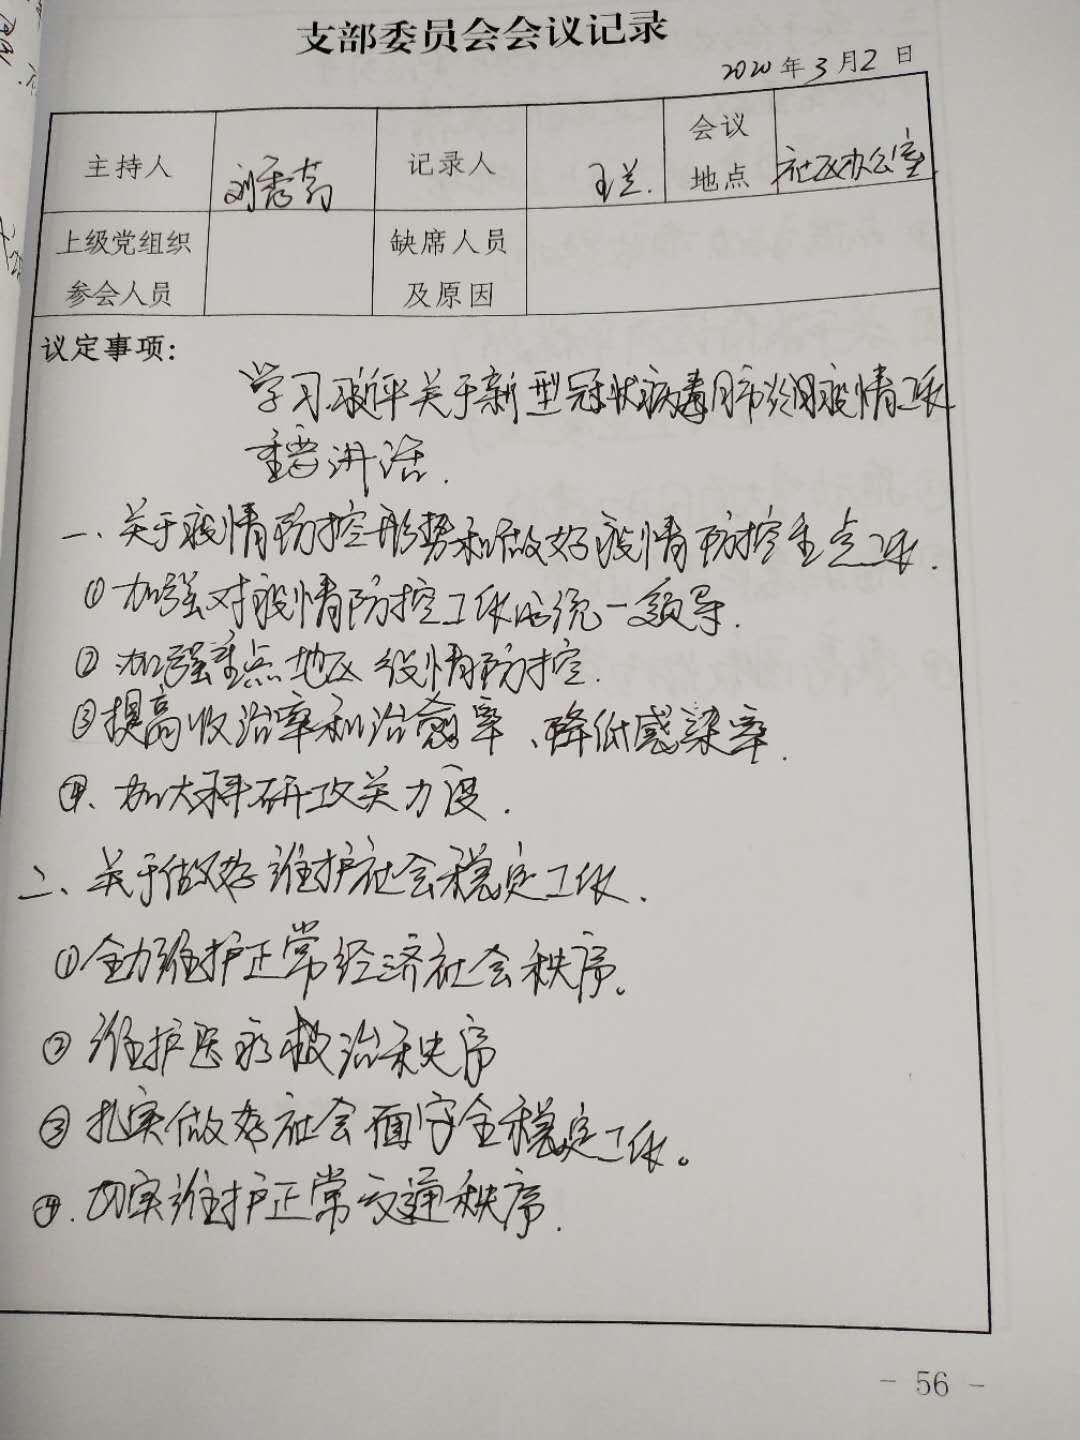 支部委员会会议记录
2020年3月2日
主持人 刘秀 记录人 王兰. 会议地点 社区办公室
上级党组织参会人员 缺席人员及原因
议定事项:
学习习近平关于新型冠状病毒肺炎疫情工作
重要讲话.
一、关于疫情防控形势和做好疫情防控重点工作.
①加强对疫情防控工作的统一领导.
②加强重点地区疫情防控.
③提高收治率和治愈率、降低感染率.
④、加大科研攻关力度.
二、关于做好维护社会稳定工作.
①全力维护正常经济社会秩序。
②维护医疗救治秩序
③扎实做好社会面安全稳定工作。
④.切实维护正常交通秩序.
- 56 -